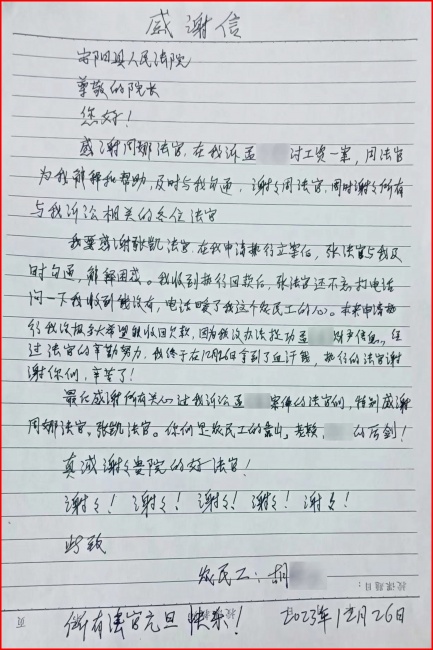 感谢信
宁阳县人民法院
尊敬的院长
您好！
感谢周娜法官，在我诉孟 讨工资一案，周法官
为我解释和帮助，及时与我沟通，谢谢周法官，同时谢谢所有
与我诉讼相关的各位法官
我要感谢张凯法官，在我申请执行立案后，张法官与我及
时沟通，解释困惑。我收到执行回款后，张法官还不忘打电话
问一下我收到钱没有，电话暖了我这个农民工的心。本来申请执
行我没报多大希望能收回欠款，因为我没办法提功孟 财产信息，经
过法官的辛勤努力，我终于在12月26日拿到了血汗钱，执行的法官谢
谢你们，辛苦了！
最后感谢所有关心过我诉讼孟 案件的法官们，特别感谢
周娜法官、张凯法官。你们是农民工的靠山，老赖， 的历剑！
真诚谢谢 院的好法官！
谢谢！谢谢！谢谢！谢谢！谢谢！
此致
农民工：胡
授课题目：
所有法官元旦快乐！ 2023年12月26日
页